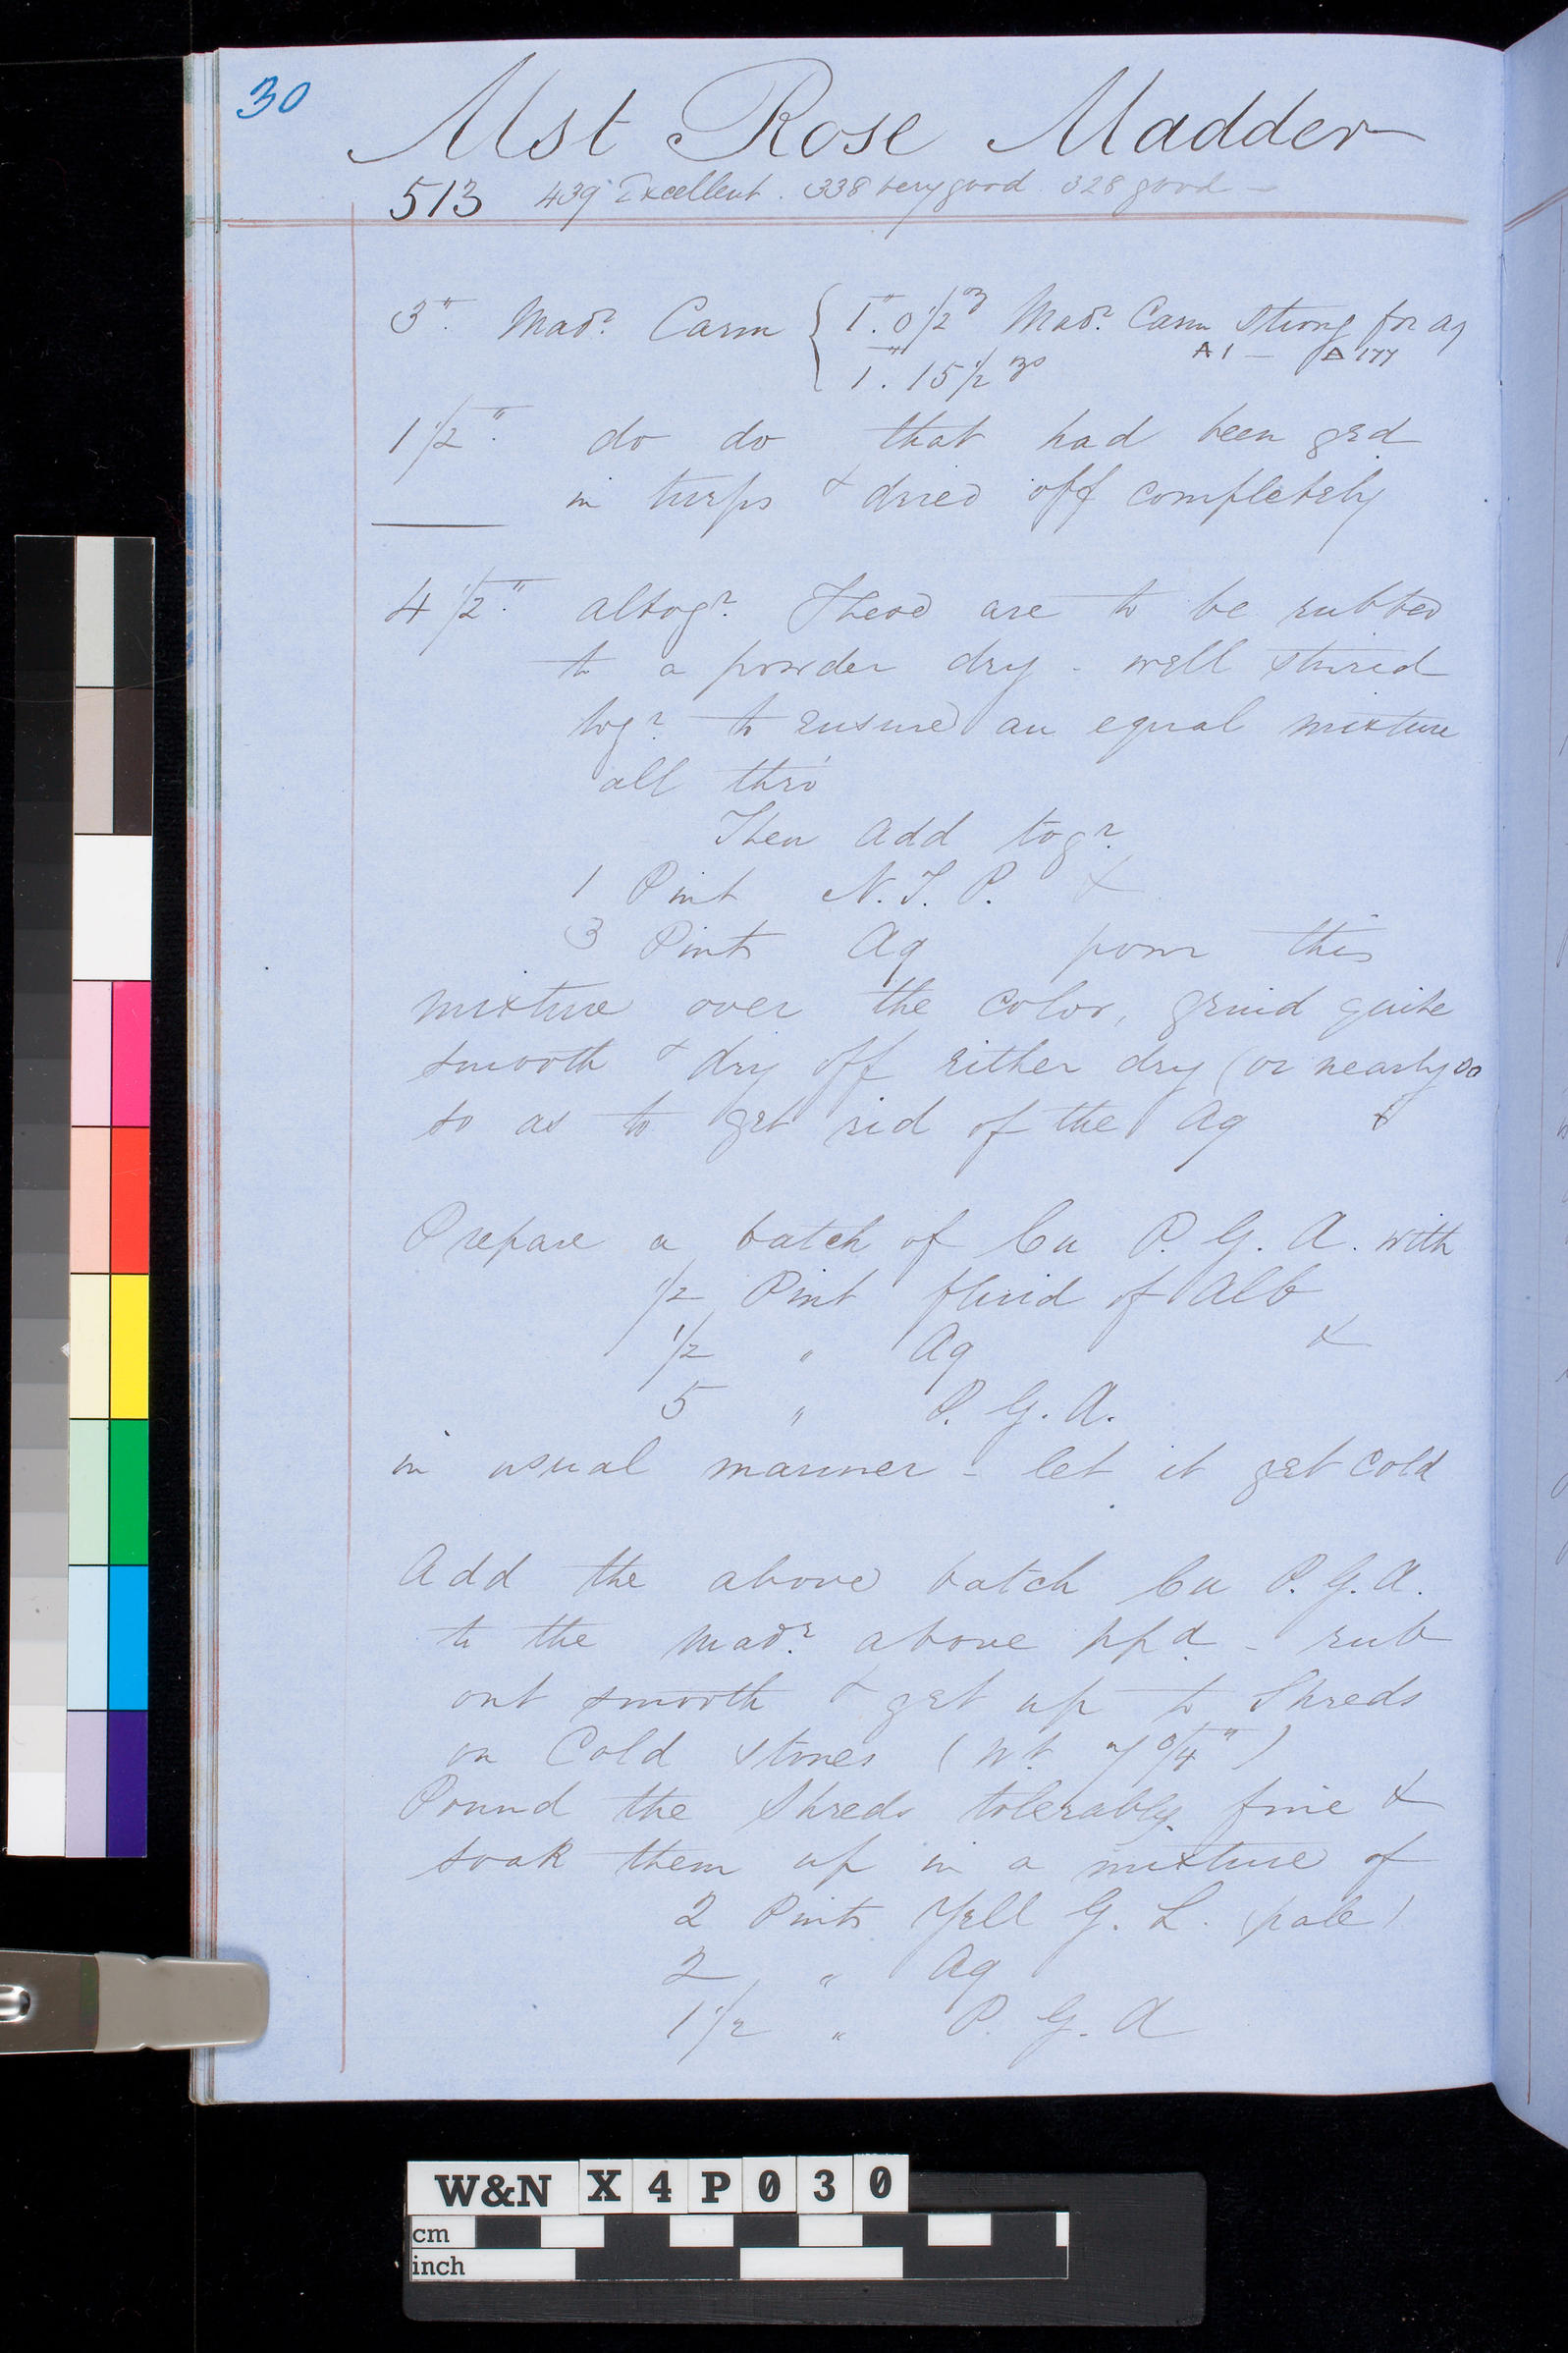 30
Mst Rose Madder
513 439 Excellent. 338 very good 328 good —
3". Madr. Carm { 1". 0 1/2 oz Madr. Carm strong for aq
A1 — 177
1". 15 1/2 ozs
1 1/2". do do that had been grd
in turps & dried off completely
4 1/2". altogr. These are to be rubbed
to a powder dry - well stirred
togr. to ensure an equal mixture
all thro'
Then add togr.
1 Pint N. T. P. &
3 Pints Aq pour this
mixture over the color, grind quite
smooth & dry off either dry (or nearly so
so as to get rid of the Aq &
Prepare a batch of Cu P. G. A. with
1/2 Pint fluid of Alb
1/2 " Aq &
5 " P. G. A.
in usual manner - let it get cold
Add the above batch Cu P. G. A.
to the Madr. above ppd - rub
out smooth & get up to Shreds
on Cold stones (Wt.
Pound the Shreds tolerably fine &
soak them up in a mixture of
2 Pints Yell G. L. (pale)
2 " Aq
1 1/2 " P. G. A
W&N X 4 P 0 3 0
cm
inch